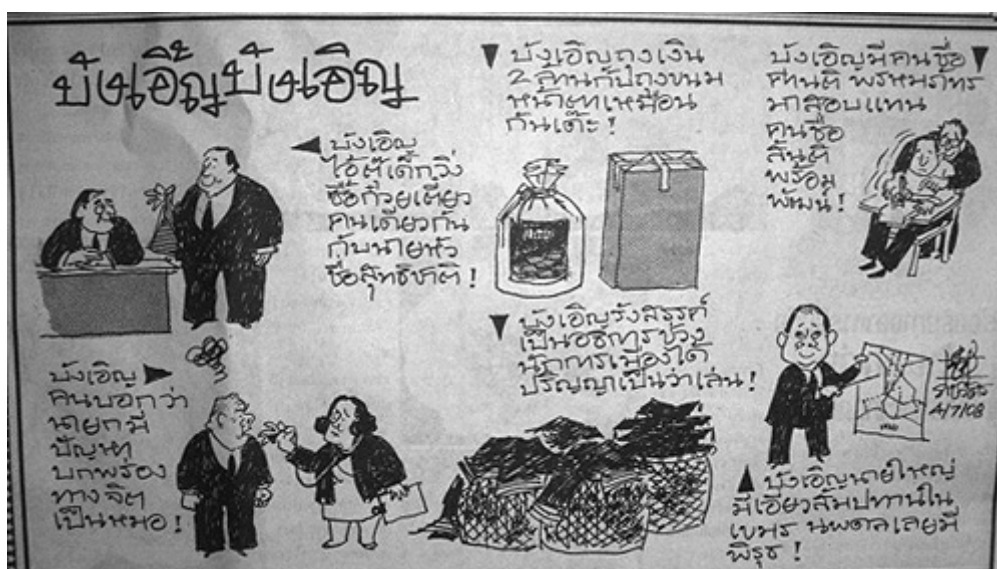 บังเอิ๊ญบังเอิญ
บังเอิญ
ไอ้ตี๋เด็กวิ่ง
ซื้อก๋วยเตี๋ยว
คนเดียวกัน
กับนายหัว
ชื่อสุทธิชาติ!
บังเอิญถุงเงิน
2 ล้านกับถุงขนม
หน้าตาเหมือน
กันเด๊ะ!
บังเอิญมีคนชื่อ
ศานติ พรหมภัทร
มาสอบแทน
คนชื่อ
สันติ
พร้อม
พัฒน์!
บังเอิญ
คนบอกว่า
นายกมี
ปัญหา
บกพร่อง
ทางจิต
เป็นหมอ!
บังเอิญรังสรรค์
เป็นอธิการช่วง
นักการเมืองได้
ปริญญาเป็นว่าเล่น!
4/7/08
บังเอิญนายใหญ่
มีเอี่ยวสัมปทานใน
เขมร นพดลเลยมี
พิรุธ!